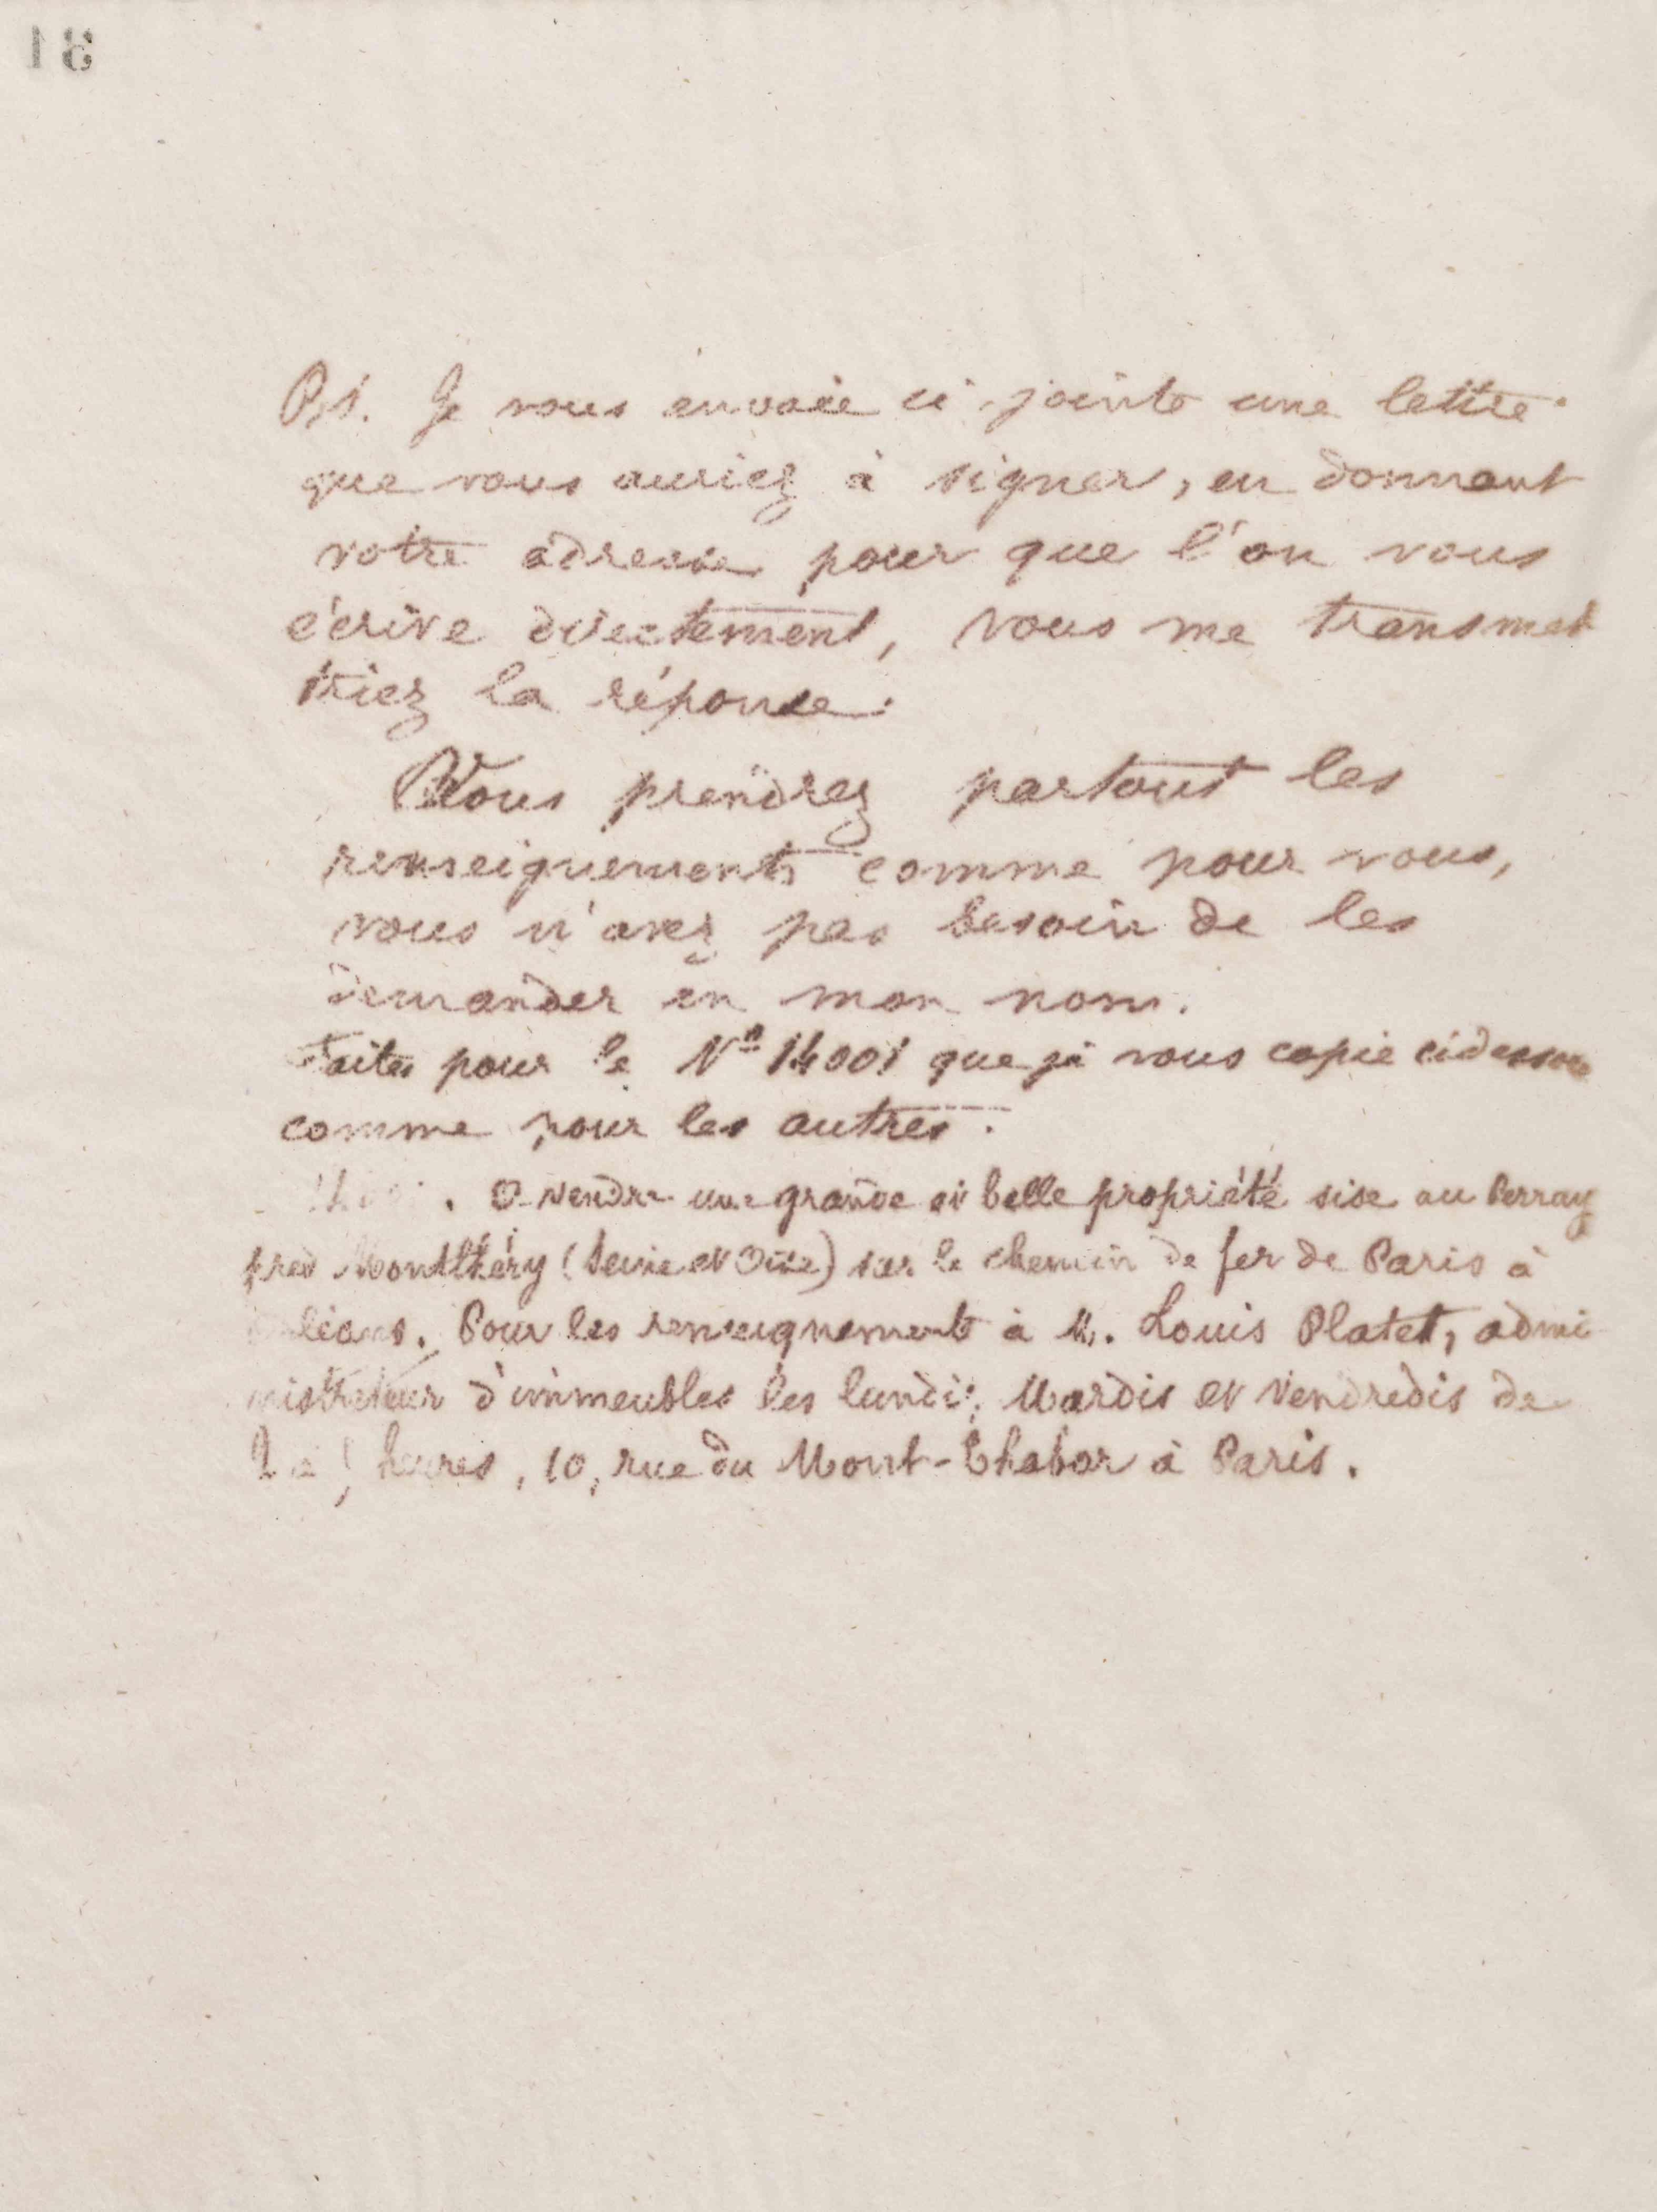 P.S. Je vous envoie ci-jointe une lettre
que vous auriez à signer, en donnant
votre adresse pour que l'on vous
écrive directement, vous me transmet
triez la réponse.
Vous prendrez partout les
renseignements comme pour vous,
vous n'avez pas besoin de les
demander en mon nom.
Faites pour le N° 14001 que je vous copie cidessous
comme pour les autres.
A vendre une grande et belle propriété sise au Perray
près Montlhéry (Seine et Oise) sur le chemin de fer de Paris à
Orléans. Pour les renseignements à M. Louis Platet, admi
nistrateur d'immeubles les lundis, Mardis et Vendredis de
2 à heures, 10, rue du Mont-Thabor à Paris.